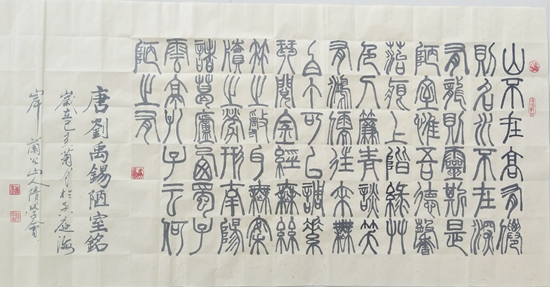 山不在高有僊
則名水不在深
有龍則靈斯是
陋室惟吾德馨
苔痕上階綠艸
色入簾青談笑
有鴻儒往來無
白丁可以調素
琴閱金經無絲
竹之亂耳無案
牘之勞形南陽
諸葛廬西蜀子
雲亭孔子云何
陋之有
唐劉禹錫陋室銘
歲菊月於海
岸山人書